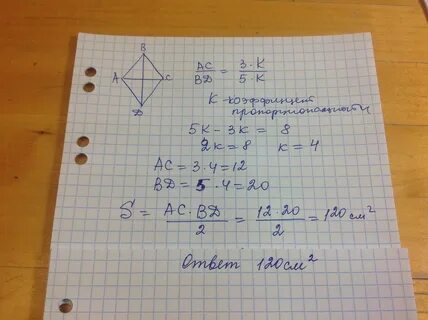 B
A C
D
AC/BD = 3·K/5·K
K - коэффицент
пропорциональности
5K - 3K = 8
2K = 8 K = 4
AC = 3·4 = 12
BD = 5·4 = 20
S = AC·BD/2 = 12·20/2 = 120 см²
Ответ 120 см²